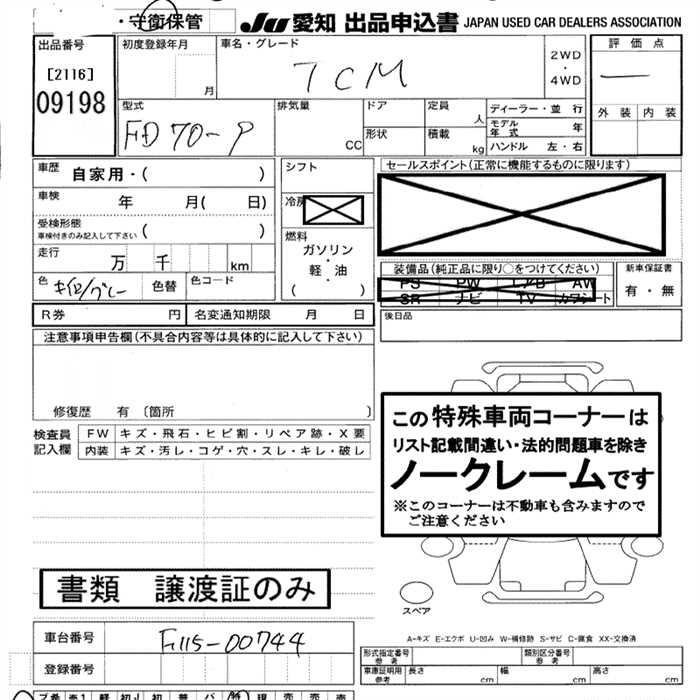 ・守衛保管
JU 愛知 出品申込書 JAPAN USED CAR DEALERS ASSOCIATION
出品番号
[2116]
09198
初度登録年月
月
車名・グレード
TCM
2WD
・
4WD
評価点
外装 内装
型式
FD70-9
排気量
CC
ドア
形状
定員
人
積載
kg
ディーラー・並行
モデル年式 年
ハンドル 左・右
車歴 自家用・( )
車検 年 月( 日)
受検形態
車検付きのみ記入して下さい ( )
走行 万 千 km
色 キイロ/グレー 色替 色コード
シフト
冷房
燃料
ガソリン
・
軽・油
( )
セールスポイント(正常に機能するものに限ります)
装備品(純正品に限り○をつけてください)
PS PW エアB AW
SR ナビ TV カワシート
新車保証書
有・無
R券 円 名変通知期限 月 日
後日品
注意事項申告欄(不具合内容等は具体的に記入して下さい)
修復歴 有〔箇所 〕
検査員
記入欄
FW キズ・飛石・ヒビ割・リペア跡・X要
内装 キズ・汚レ・コゲ・穴・スレ・キレ・破レ
この特殊車両コーナーは
リスト記載間違い・法的問題車を除き
ノークレームです
※このコーナーは不動車も含みますので
ご注意ください
スペア
書類 譲渡証のみ
A-キズ E-エクボ U-凹み W-補修跡 S-サビ C-腐食 XX-交換済
車台番号 F115-00744
登録番号
型式指定番号
参考
類別区分番号
参考
車庫
参考
長さ cm 幅 cm 高さ cm